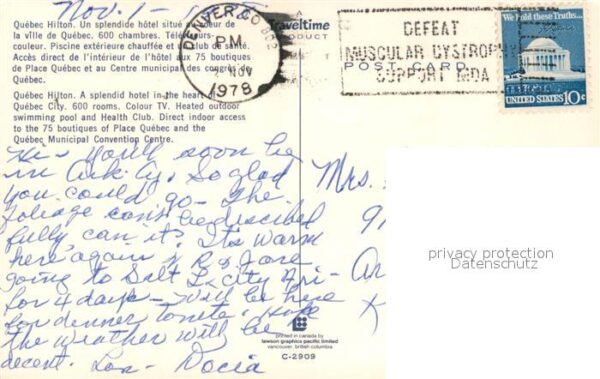 Nov. 1 -
Québec Hilton. Un splendide hôtel situé au coeur de
la ville de Québec. 600 chambres. Téléviseurs
couleur. Piscine extérieure chauffée et club de santé.
Accès direct de l'intérieur de l'hôtel aux 75 boutiques
de Place Québec et au Centre municipal des congrès de
Québec.
Québec Hilton. A splendid hotel in the heart of
Québec City. 600 rooms. Colour TV. Heated outdoor
swimming pool and Health Club. Direct indoor access
to the 75 boutiques of Place Québec and the
Québec Municipal Convention Centre.
Traveltime
PRODUCT
DENVER, CO 802
PM
NOV
1978
DEFEAT
MUSCULAR DYSTROPHY
SUPPORT MDA
POST CARD
We hold these Truths...
UNITED STATES 10c
you'll soon be
in Ark City. So glad
you could go - The
foliage can't be described
fully, can it? It's warm
here again &
going to Salt L. City Fri -
for 4 days - will be here
for dinner tonite. Hope
the weather will be
decent. Love - Docia
Mrs.
9
Ar
K
privacy protection
Datenschutz
printed in canada by
lawson graphics pacific limited
vancouver, british columbia
C-2909